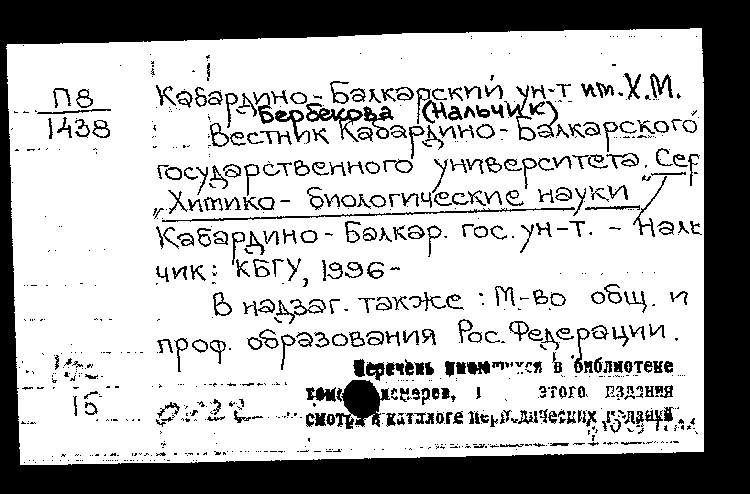 П8
1438
Кабардино-Балкарский ун-т им. Х.М.
Бербекова (Нальчик)
Вестник Кабардино-Балкарского
государственного университета. Сер
"Химико-биологические науки" /
Кабардино-Балкар. гос. ун-т. - Наль
чик: КБГУ, 1996-
В надзаг. также: М-во общ. и
проф. образования Рос. Федерации.
Перечень в библиотеке
номеров, этого издания
смотри в каталоге периодических изданий
16